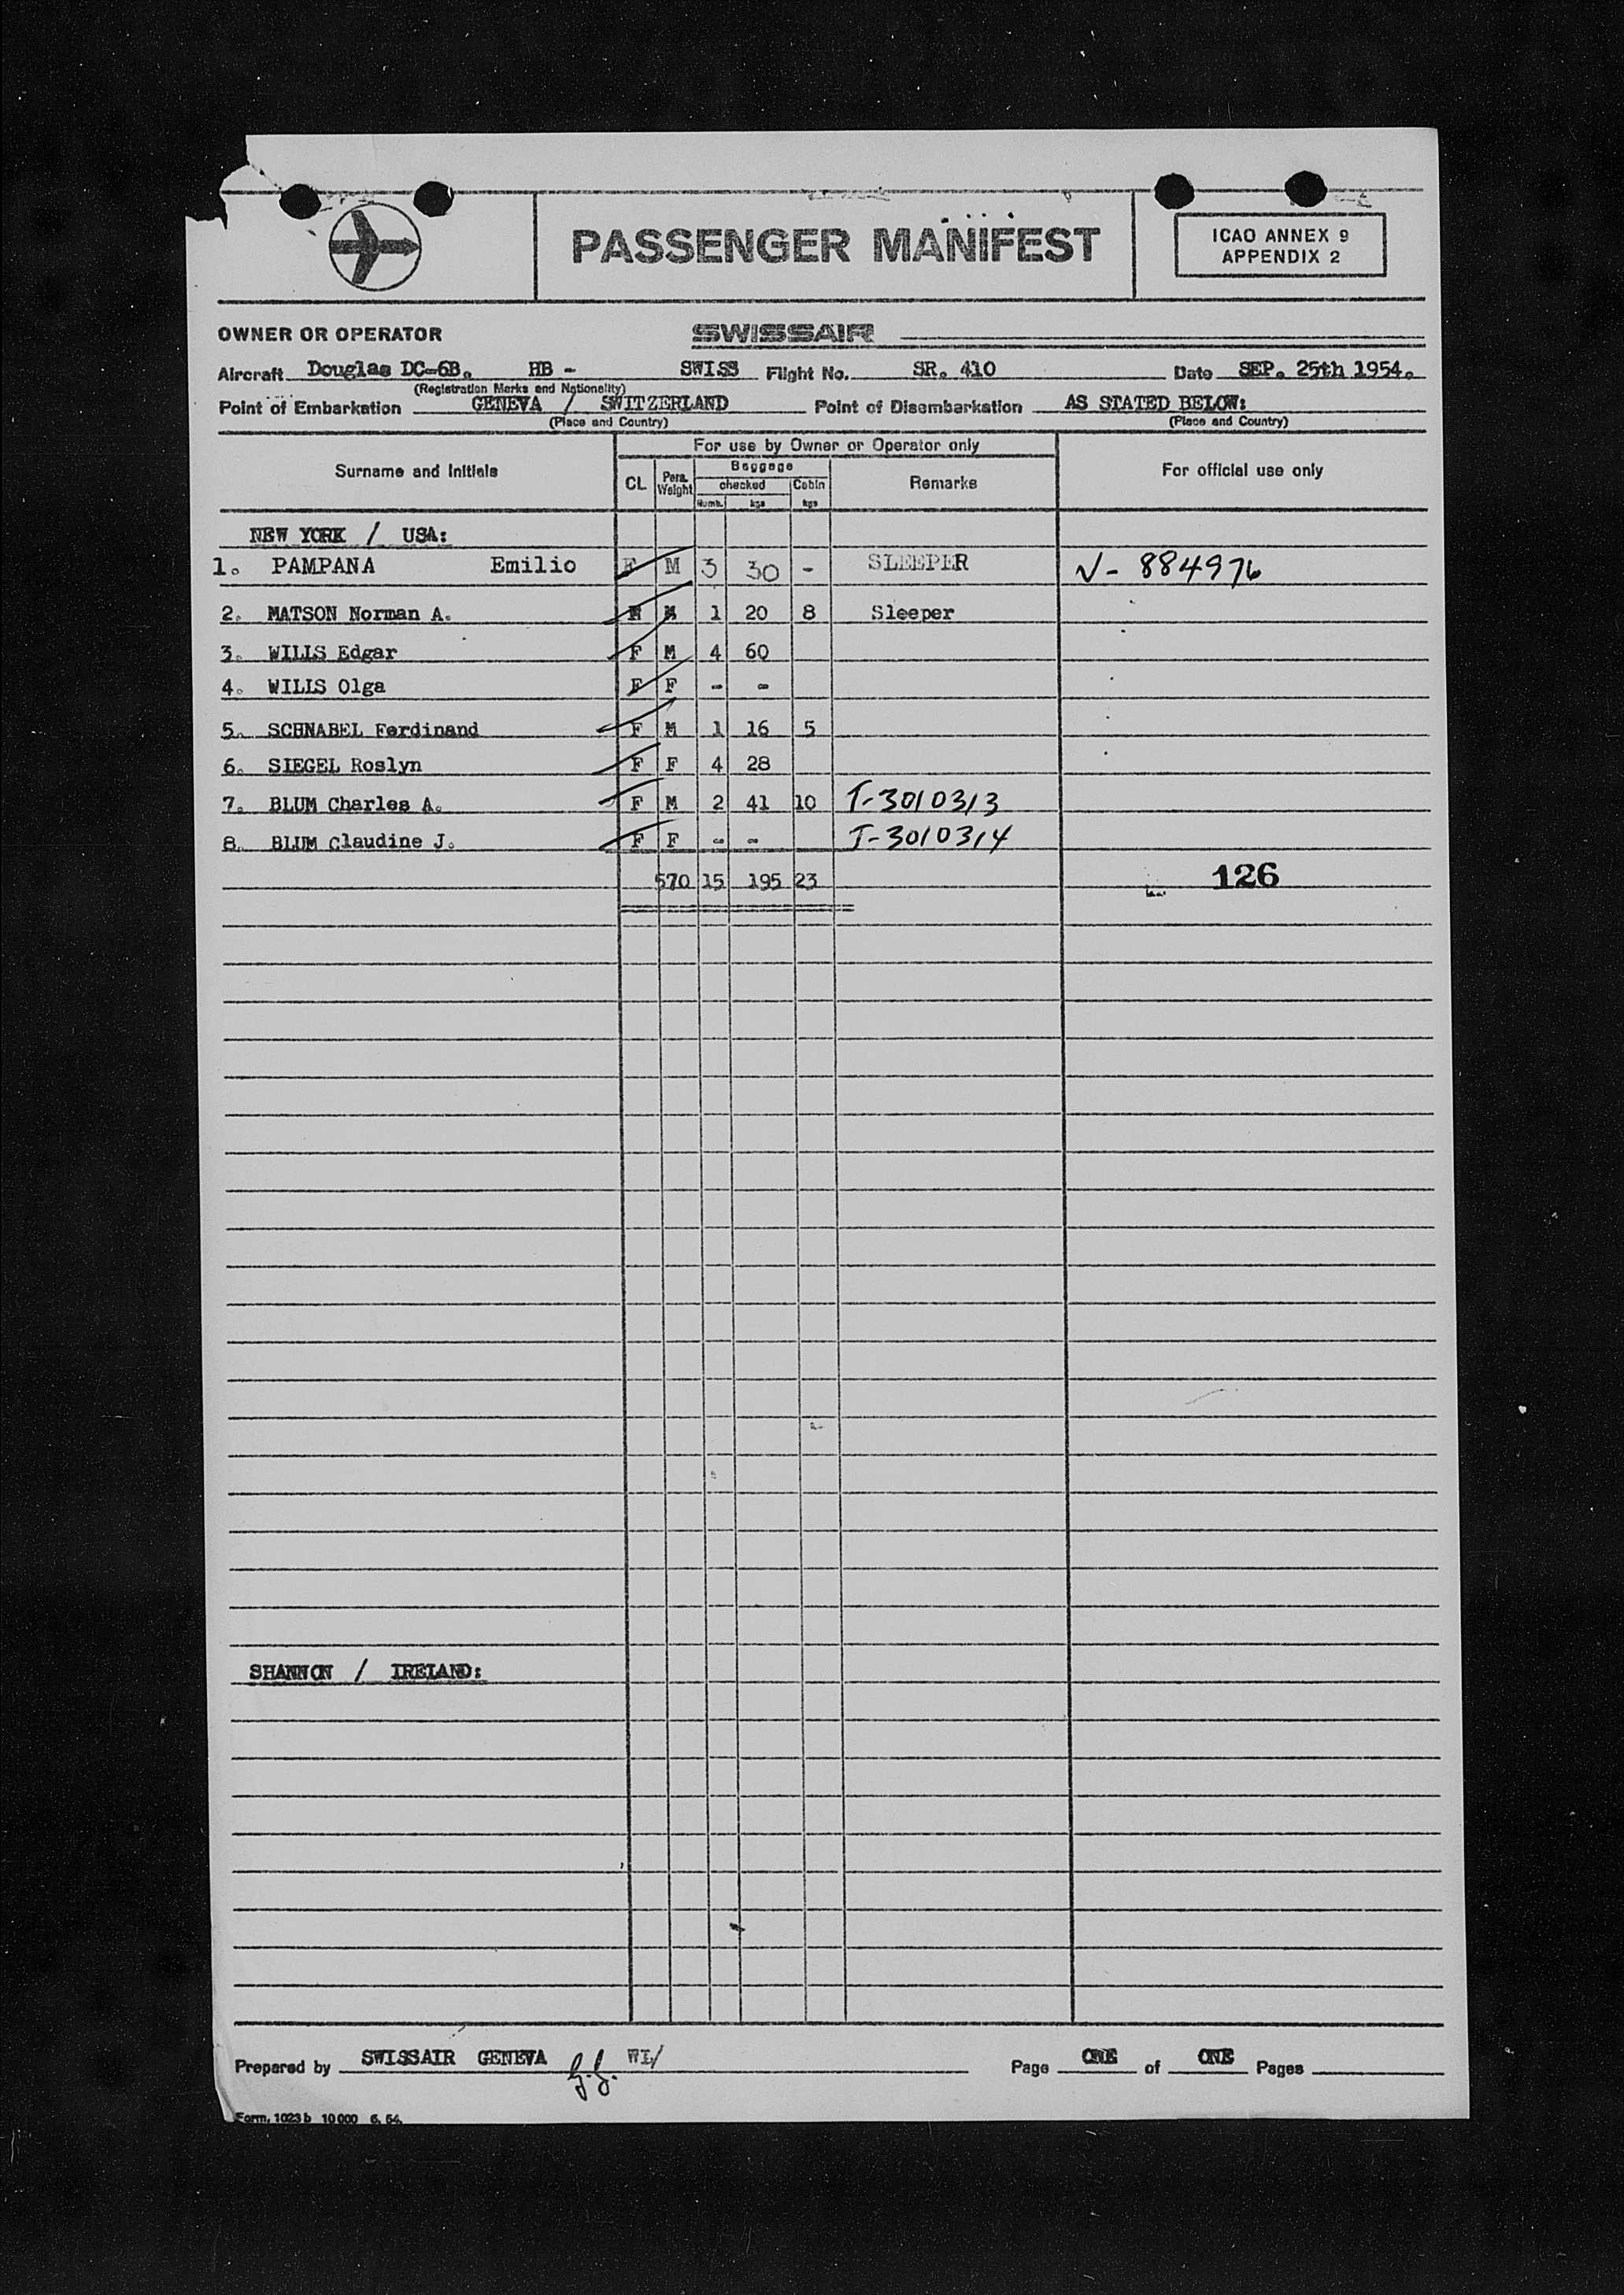 PASSENGER MANIFEST
ICAO ANNEX 9
APPENDIX 2
OWNER OR OPERATOR SWISSAIR
Aircraft Douglas DC-6B. HB - SWISS Flight No. SR. 410 Date SEP. 25th 1954.
(Registration Marks and Nationality)
Point of Embarkation GENEVA / SWITZERLAND Point of Disembarkation AS STATED BELOW:
(Place and Country) (Place and Country)
For use by Owner or Operator only
Surname and Initials CL Pers. Weight Baggage Remarks For official use only
checked Cabin
Numb. kgs kgs
NEW YORK / USA:
1. PAMPANA Emilio F M 3 30 - SLEEPER V- 884976
2. MATSON Norman A. M 1 20 8 Sleeper
3. WILLS Edgar F M 4 60
4. WILLS Olga F F - -
5. SCHNABEL Ferdinand F M 1 16 5
6. SIEGEL Roslyn F F 4 28
7. BLUM Charles A. F M 2 41 10 T-3010313
8. BLUM Claudine J. F F - - T-3010314
570 15 195 23 126
SHANNON / IRELAND:
Prepared by SWISSAIR GENEVA WL/ Page ONE of ONE Pages
Form. 1023 b 10 000 6. 54.